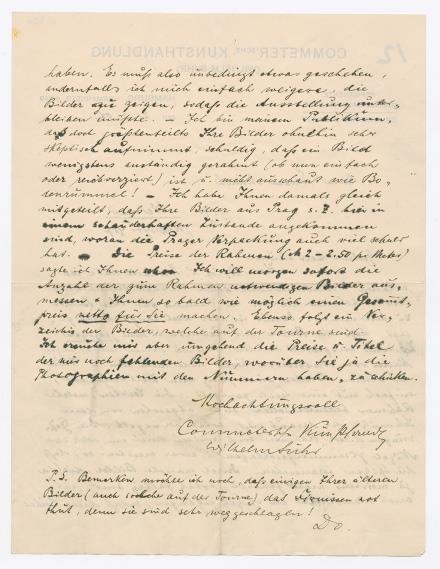 haben. Es muß also unbedingt etwas geschehen,
andernfalls ich mich einfach weigere, die
Bilder zu zeigen, sodaß die Ausstellung unter-
bleiben müßte. — Ich bin meinem Publikum,
das doch größtenteils Ihre Bilder ohnehin sehr
skeptisch aufnimmt, schuldig, daß ein Bild
wenigstens anständig gerahmt (ob nun einfach
oder reichverziert) ist u. nicht ausschaut wie Bo-
denrummel! — Ich habe Ihnen damals gleich
mitgeteilt, daß Ihre Bilder aus Prag s. Z. hier in
einem schauderhaften Zustande angekommen
sind, woran die Prager Verpackung auch viel schuld
hat. — Die Preise der Rahmen (M 2 – 2.50 pr Meter)
sagte ich Ihnen schon. Ich will morgen sofort die
Anzahl der zum Rahmen notwendigen Bilder aus-
messen & Ihnen so bald wie möglich einen Gesamt-
preis netto für Sie machen. Ebenso folgt ein Ver-
zeichnis der Bilder, welche auf der Tournee sind.
Ich ersuche mir aber umgehend die Preise u. Titel
der mir noch fehlenden Bilder, worüber Sie ja die
Photographien mit den Nummern haben, zu schicken.
Hochachtungsvoll
Commetersche Kunsthandlg
Wilhelm Suhr
P.S. Bemerken möchte ich noch, daß einigen Ihrer älteren
Bilder (auch solche auf der Tournee) das Firnissen not
thut, denn sie sind sehr weggeschlagen!
D. O.
COMMETER'SCHE KUNSTHANDLUNG
12